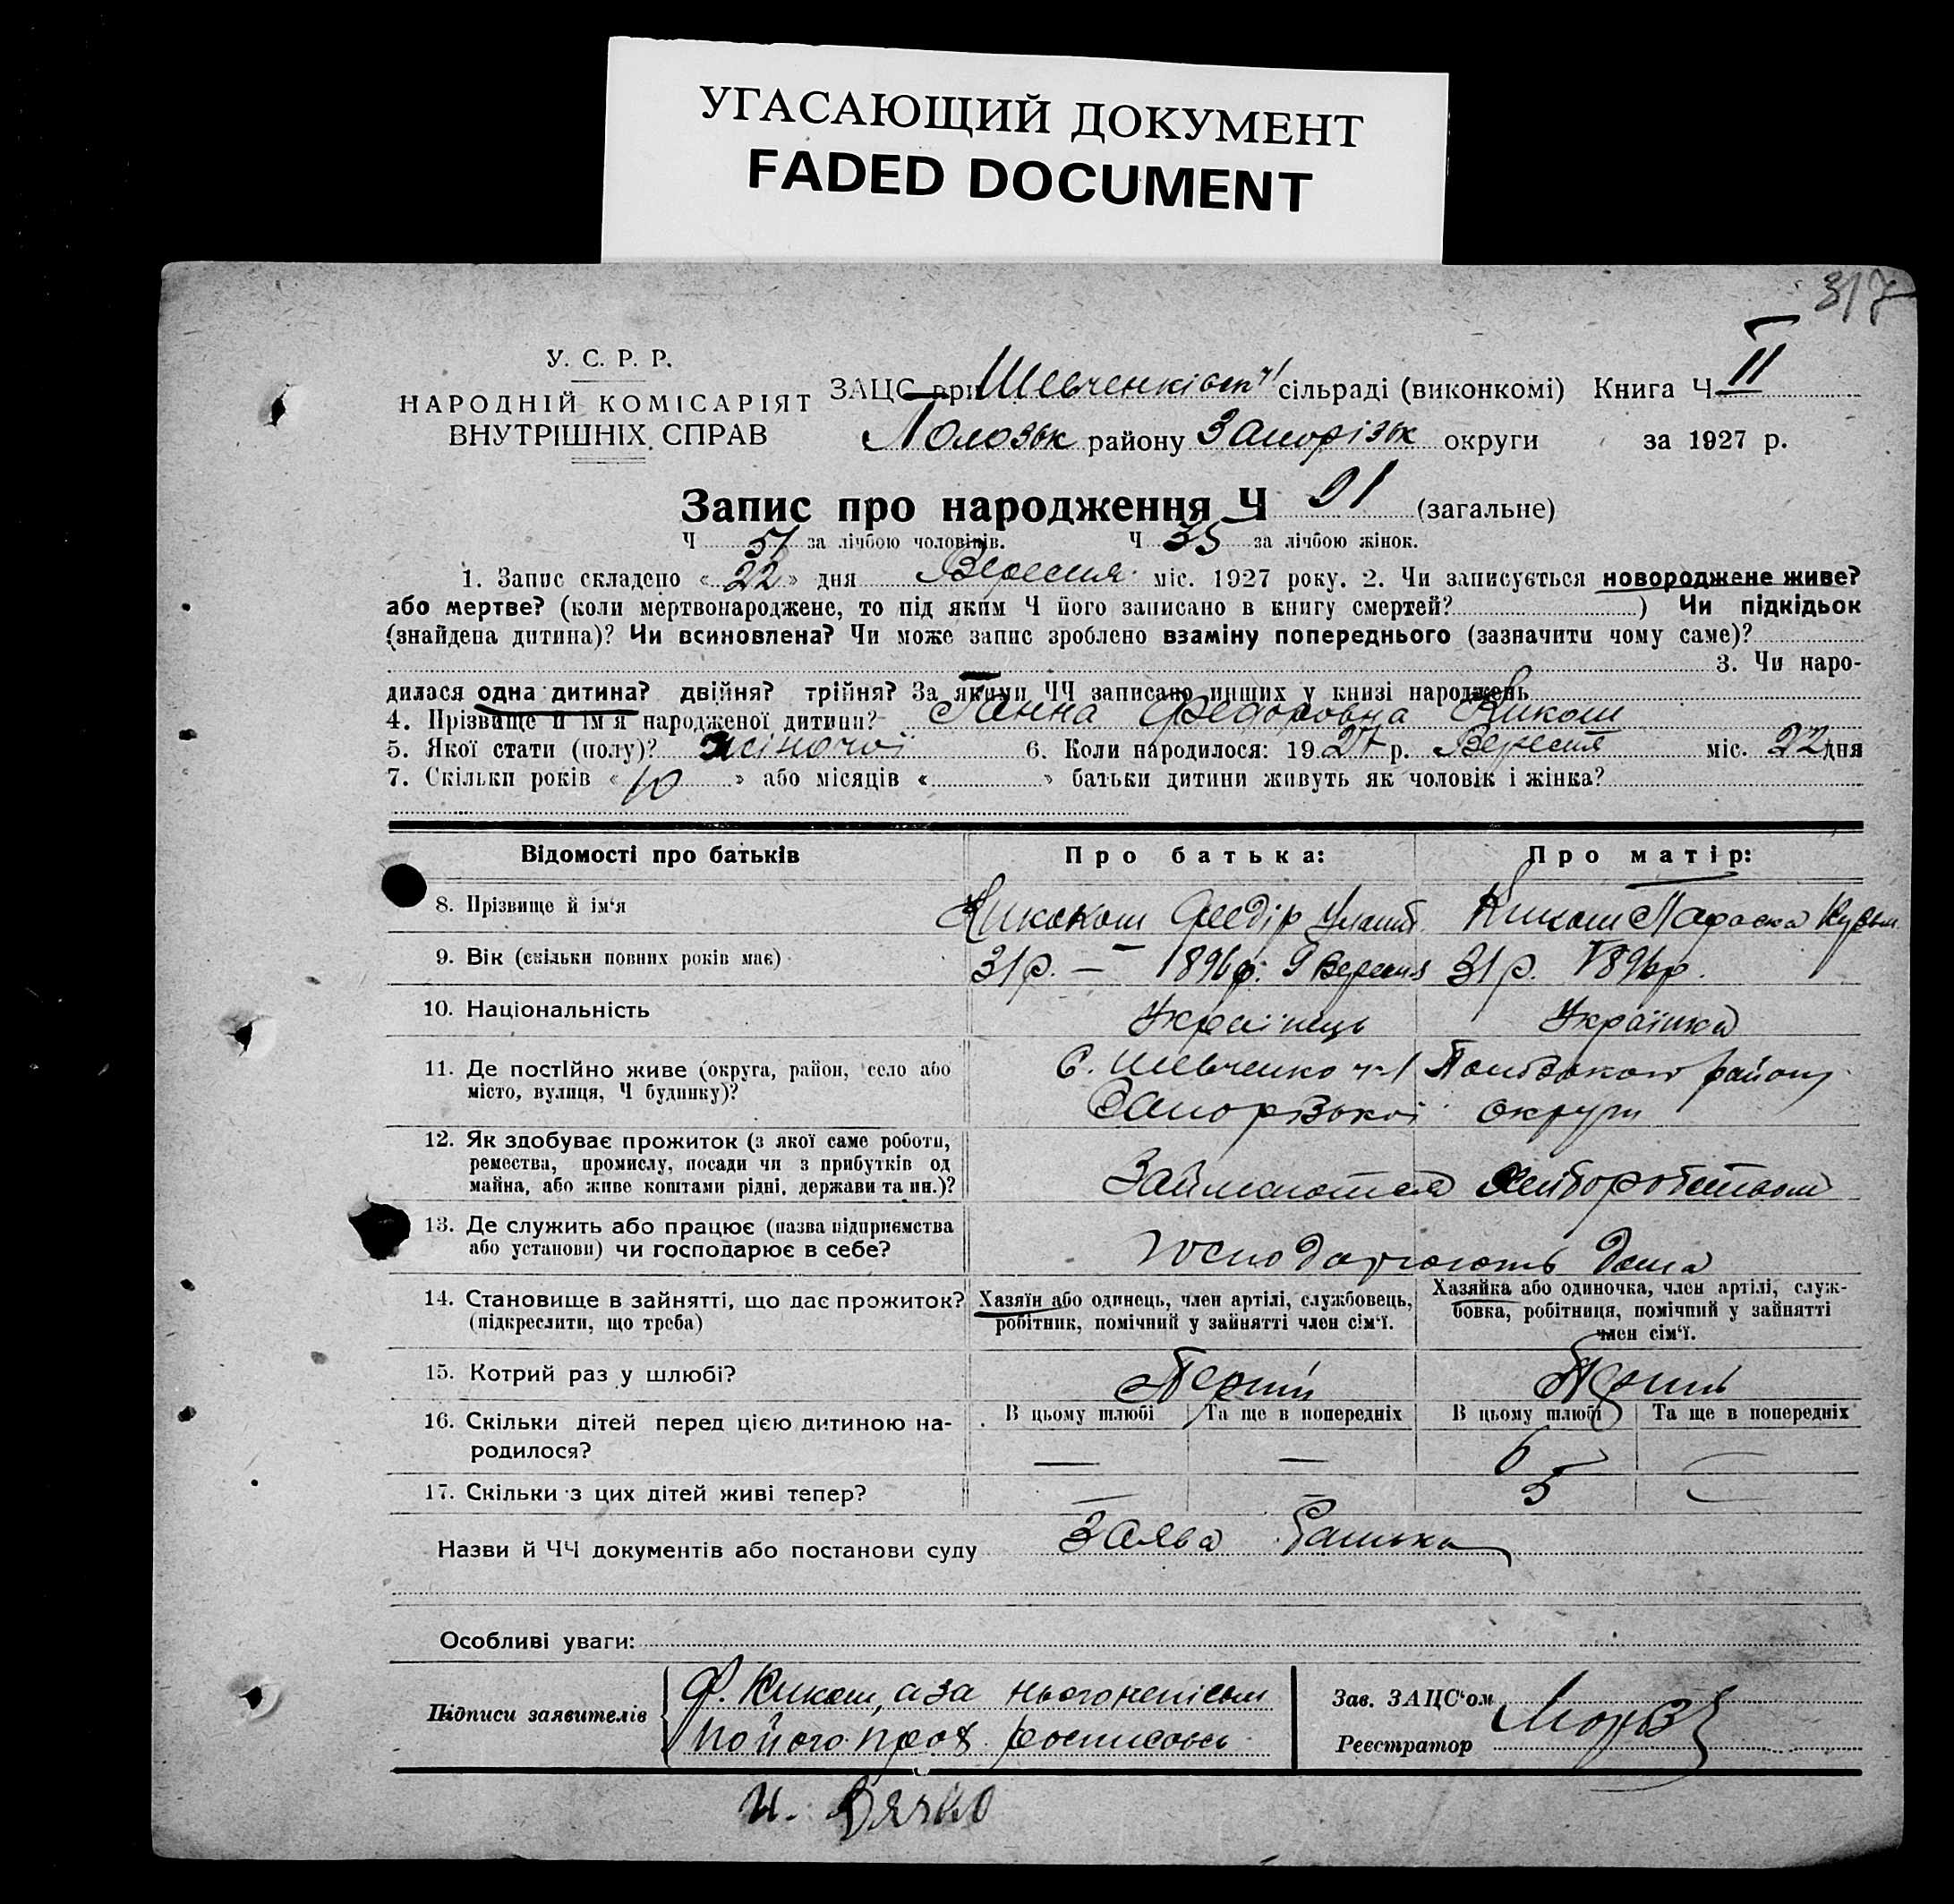 УГАСАЮЩИЙ ДОКУМЕНТ
FADED DOCUMENT
317
У. С. Р. Р.
НАРОДНІЙ КОМІСАРІЯТ
ВНУТРІШНІХ СПРАВ
ЗАЦС при Шевченківськ ч1 сільраді (виконкомі) Книга Ч II
Полозьк району Запорізьк округи за 1927 р.
Запис про народження Ч 91 (загальне)
Ч 57 за лічбою чоловіків. Ч 35 за лічбою жінок.
1. Запис складено «22» дня Вересня міс. 1927 року. 2. Чи записується новороджене живе?
або мертве? (коли мертвонароджене, то під яким Ч його записано в книгу смертей? ) Чи підкідьок
(знайдена дитина)? Чи всиновлена? Чи може запис зроблено взаміну попереднього (зазначити чому саме)?
3. Чи наро-
дилася одна дитина? двійня? трійня? За якими ЧЧ записано инших у книзі народжень
4. Прізвище й ім'я народженої дитини? Ганна Федоровна Кикот
5. Якої стати (полу)? жіночої 6. Коли народилося: 1927 р. Вересня міс. 22 дня
7. Скільки років «10» або місяців « » батьки дитини живуть як чоловік і жінка?
Відомості про батьків Про батька: Про матір:
8. Прізвище й ім'я Федір Кикот Параска Кузьм
9. Вік (скільки повних років має) 31 р. — 1896 р. 9 Вересня 31 р. 1896 р.
10. Національність Українець Українка
11. Де постійно живе (округа, район, село або С. Шевченко ч1 району
місто, вулиця, Ч будинку)? Запорізької округи
12. Як здобуває прожиток (з якої саме роботи,
ремества, промислу, посади чи з прибутків од
майна, або живе коштами рідні, держави та ин.)? Займаються хліборобством
13. Де служить або працює (назва підприємства
або установи) чи господарює в себе? господарюють дома
14. Становище в зайнятті, що дає прожиток? Хазяїн або одинець, член артілі, службовець, Хазяйка або одиночка, член артілі, служ-
(підкреслити, що треба) робітник, помічний у зайнятті член сім'ї. бовка, робітниця, помічний у зайнятті
член сім'ї.
15. Котрий раз у шлюбі? Перший Перший
16. Скільки дітей перед цією дитиною на- В цьому шлюбі Та ще в попередніх В цьому шлюбі Та ще в попередніх
родилося? — — 6 —
17. Скільки з цих дітей живі тепер? — — 5 —
Назви й ЧЧ документів або постанови суду Заява батька
Особливі уваги:
Підписи заявителів Ф. Кикот, а за нього неписьм
по його прозб росписавсь
Зав. ЗАЦС'ом
Реєстратор
И. Дячко